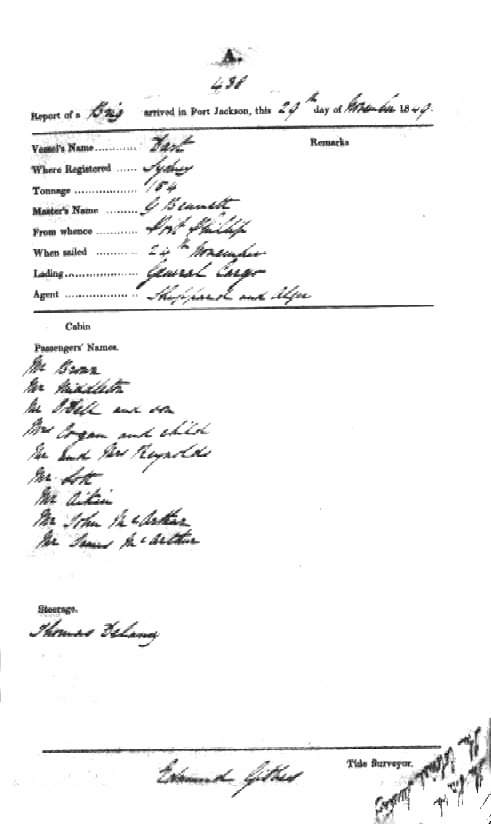 A.
438
Report of a Brig arrived in Port Jackson, this 29th day of November 1849.
Vessel's Name............ Dart Remarks
Where Registered ...... Sydney
Tonnage .................. 184
Master's Name ......... G Bennett
From whence ............ Port Phillip
When sailed ............ 24th November
Lading..................... General Cargo
Agent ..................... Sheppard and Alger
Cabin
Passengers' Names.
Mr Brown
Mr Middleton
Mr and son
Mrs Cogan and child
Mr and Mrs Reynolds
Mr Lott
Mr Aitkin
Mr John McArthur
Mr James McArthur
Steerage.
Thomas Delany
Tide Surveyor.
Edmund